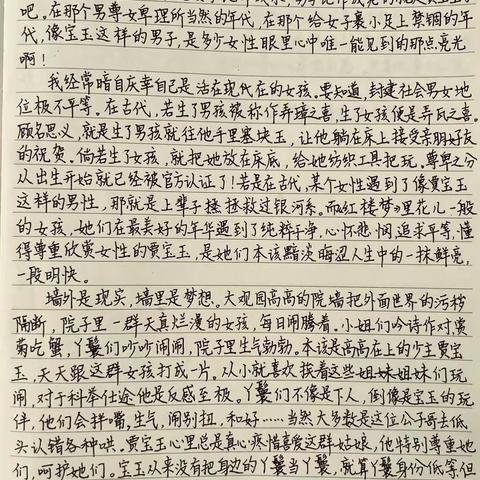 吧。在那个男尊女卑理所当然的年代,在那个给女子裹小足上禁锢的年
代,像宝玉这样的男子,是多少女性眼里心中唯一能见到的那点亮光
啊!
我经常暗自庆幸自己是活在现代在的女孩。要知道,封建社会男女地
位极不平等。在古代,若生了男孩被称作弄璋之喜,生了女孩便是弄瓦之喜。
顾名思义,就是生了男孩就往他手里塞块玉,让他躺在床上接受亲朋好友
的祝贺。倘若生了女孩,就把她放在床底,给她纺织工具把玩。尊卑之分
从出生开始就已经被官方认证了!若是在古代,某个女性遇到了像贾宝玉
这样的男性,那就是上辈子拯救过银河系。而《红楼梦》里花儿一般
的女孩,她们在最美好的年华遇到了纯粹干净,心怀悲悯追求平等,懂
得尊重欣赏女性的贾宝玉,是她们本该黯淡晦涩人生中的一抹鲜亮,
一段明快。
墙外是现实,墙里是梦想。大观园高高的院墙把外面世界的污秽
隔断,院子里一群天真烂漫的女孩,每日闹腾着。小姐们吟诗作对赏
菊吃蟹,丫鬟们吵吵闹闹,院子里生气勃勃。本该是高高在上的少主贾宝
玉,天天跟这群女孩打成一片。从小就喜欢挨着这些姐妹姐妹们玩
闹,对于科举仕途他是反感至极。丫鬟们不像是下人,倒像是宝玉的玩
伴,他们会拌嘴,生气,闹别扭,和好……当然大多数是这位公子哥去低
头认错各种哄。贾宝玉心里总是真心疼惜喜爱这群姑娘,他特别尊重她
们,呵护她们。宝玉从来没有把身边的丫鬟当丫鬟,就算丫鬟身份低等,但